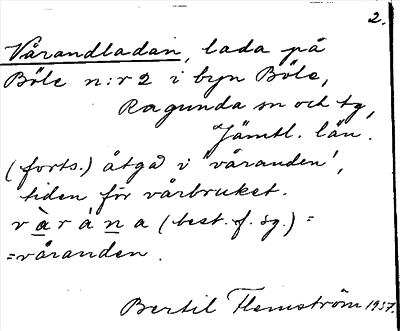 2.
Vårandladan, lada på
Böle n:r 2 i byn Böle,
Ragunda sn och tg,
Jämtl. län.
(forts.) åtgå i 'våranden',
tiden för vårbruket.
v à r á n a (best. f. sg.) =
=våranden.
Bertil Flemström 1957.